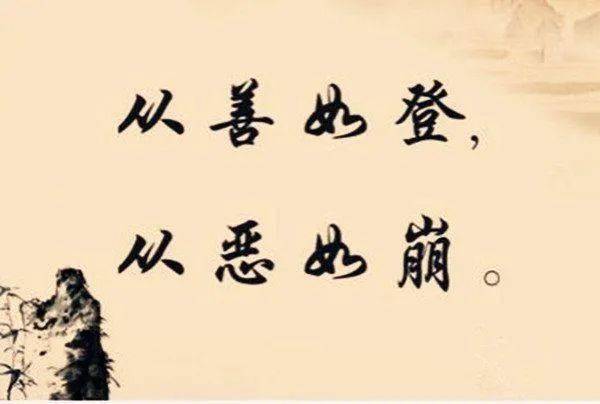 从善如登，
从恶如崩。